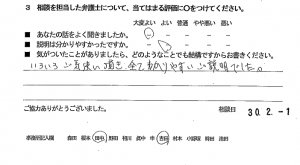 3 相談を担当した弁護士について、当てはまる評価に〇をつけてください。
大変よい よい 普通 やや悪い 悪い
■ あなたの話をよく聞きましたか。
■ 説明は分かりやすかったですか。
■ 気がついたことがありましたら、どのようなことでも結構ですからお書きください。
いろいろご気遣い頂き全てわかりやすいご説明でした。
ご協力ありがとうございました。
相談日 30.2.-1
事務所記入欄